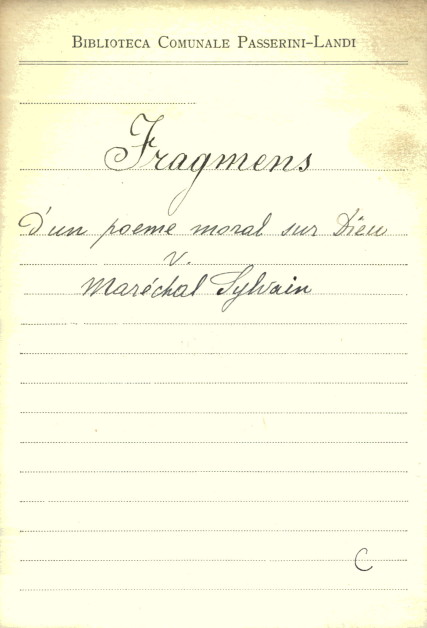 BIBLIOTECA COMUNALE PASSERINI-LANDI
Fragmens
d'un poeme moral sur Dieu
v.
Maréchal Sylvain
C